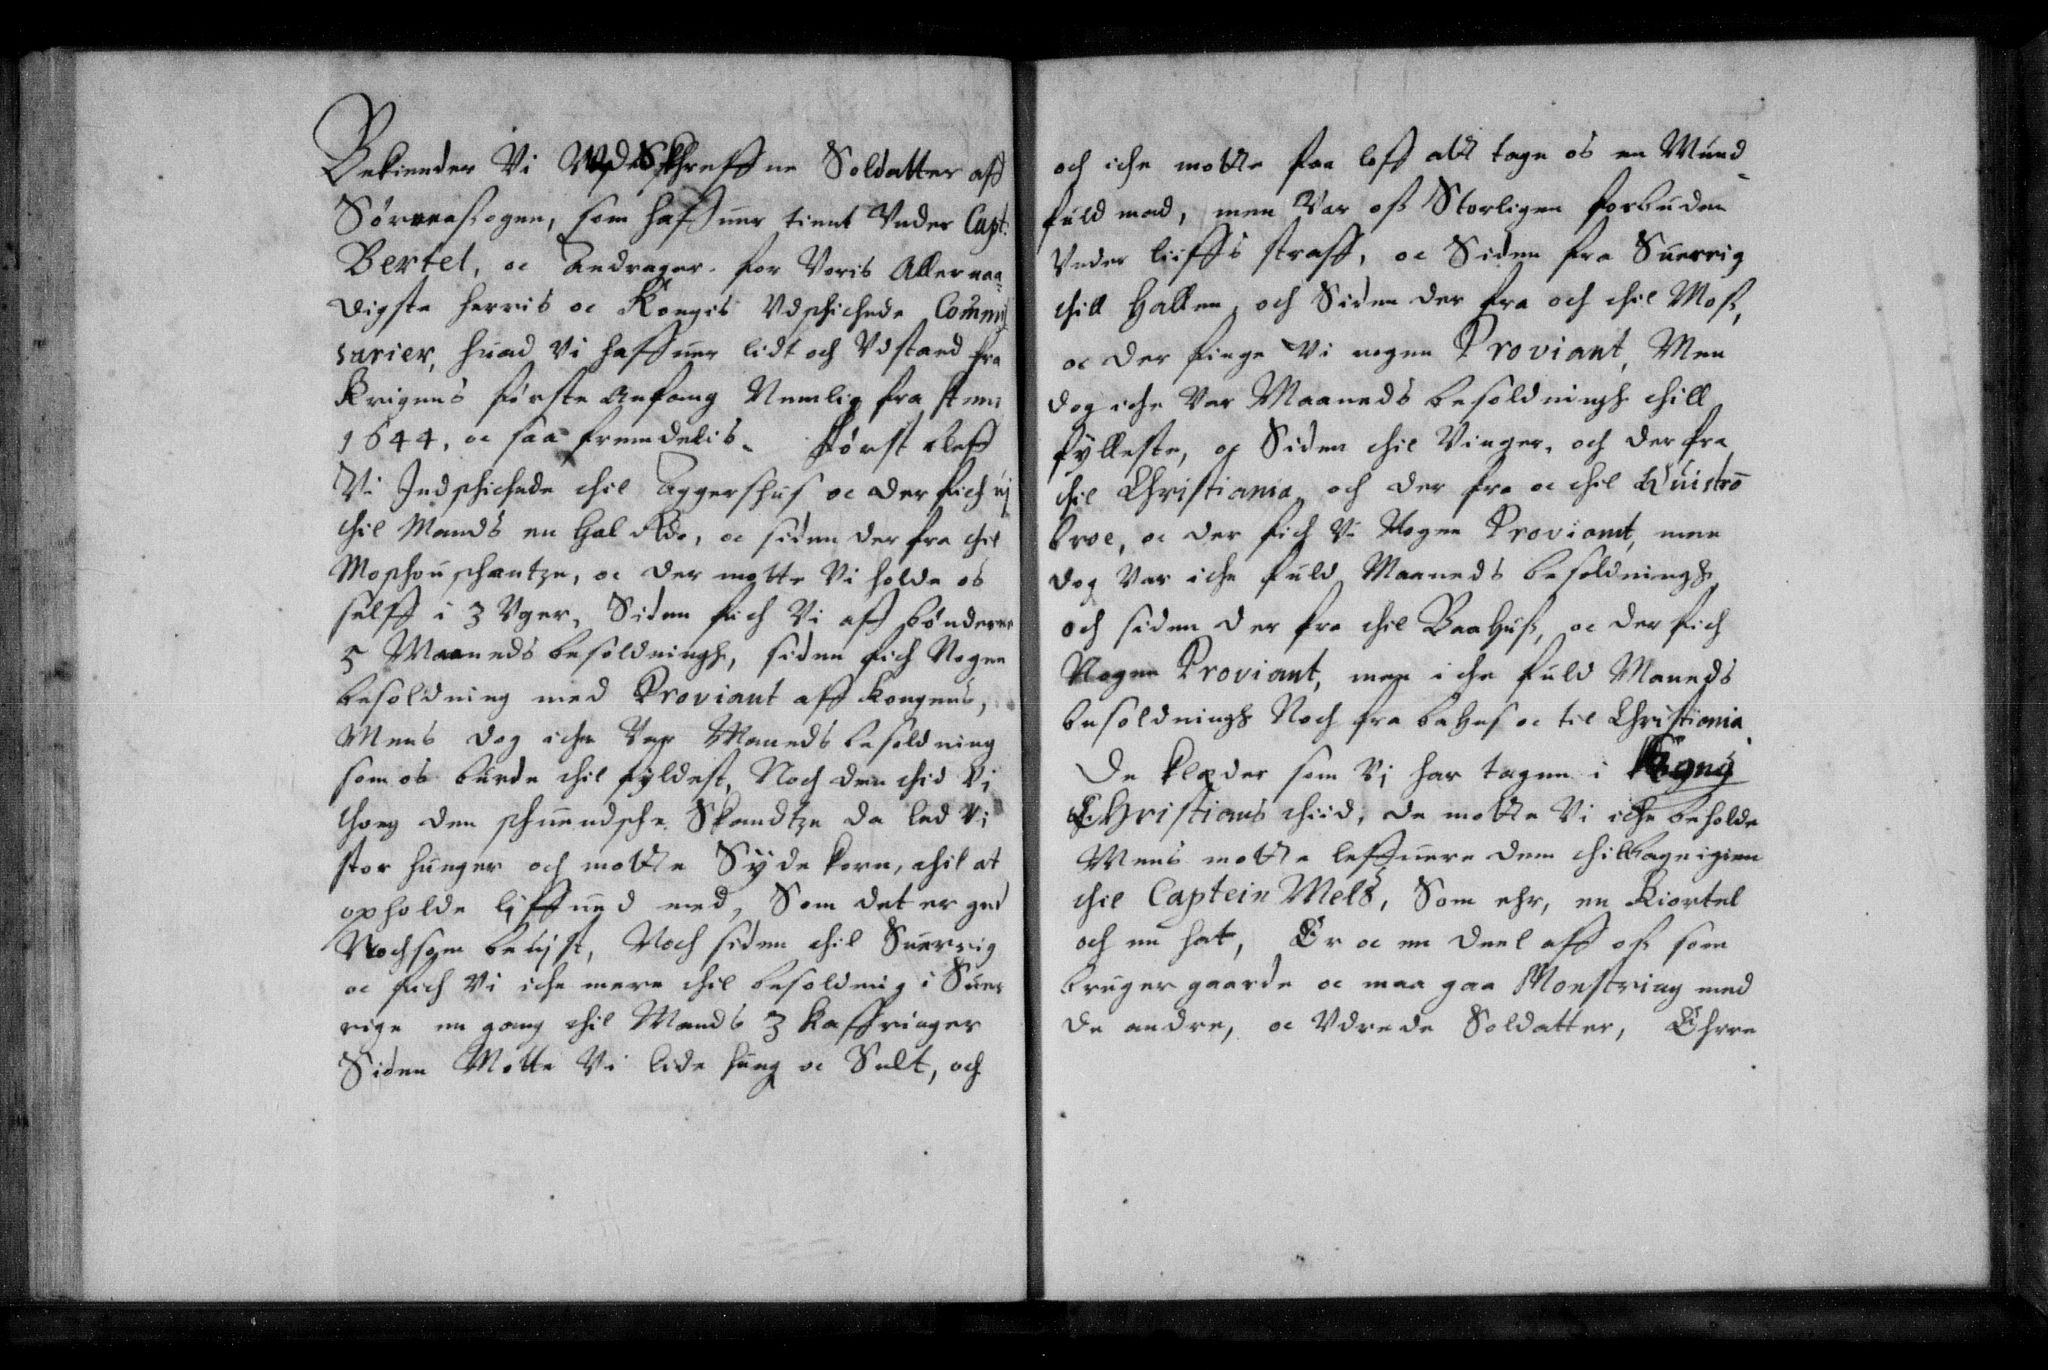 Bekiender Vi Vdskreffne Soldatter aff
Sørreaßogen, som haffuer tient Vnder Capt:
Bertel, oc Andrager for Voris Allernaa-
digste herris oc Kongis Vdschichede Commis
sarier, huad Vi haffuer lidt och Vdstaad fra
Krigens første Anfang Nemlig fra
1644, oc saa fremdelis. Først bleff
Vi Indschichede thil Aggershus oc der fich vj
thil Mands en hal Rdr, oc siden der fra thil
Moschouschantze, oc der motte Vi holde os
selff i 3 Vger, Siden fich Vi aff bønderne
5 Maaneds besoldningh, siden fich Nogen
besoldning med Proviant aff kongens,
Mens dog iche Var Maneds besoldning
som os burde thil fyldest, Noch den thid Vi
thog den schuendsche Skandtze da led Vi
stor hunger och motte Syde korn, thil at
opholde lyffued med, Som det er gud
Nochsom beuist, Noch siden thil Suerrig
oc fich Vi iche mere thil besoldning i Suer
rige en gang thil Mands 3 kaffringer
Siden Motte Vi lide hung oc Sult, och
och iche motte faa loff att tage os en Mund-
fuld mad, men Var oß Storligen forbuden
Vnder liiffs straff, oc Siden fra Suerrig
thill Hallen, och Siden der fra och thil Moß,
oc der finge Vi nogen Proviant, Men
dog iche Var Maaneds besoldningh thill
fylleste, oc Siden thil Vinger, och der fra
thil Christiania, och der fra oc thil Quistrō
broe, oc der fich Vi Nogen Proviant, men
dog Var iche fuld Maaneds besoldningh,
och siden der fra thil Baahuß, oc der fich
Nogen Proviant, men iche fuld Maneds
besoldningh Noch fra bahus oc til Christiania
De klæder som Vj har tagen i Kong
Christians thiid, de motte Vi iche beholde
Mens motte leffuere dem thilbage igien
thil Captein Mels, Som ehr, en Kiortel
och en hat, Er oc en deel aff oß som
bruger gaarde oc maa gaa Monstring med
de andre, oc Vdrede Soldatter, Ehre